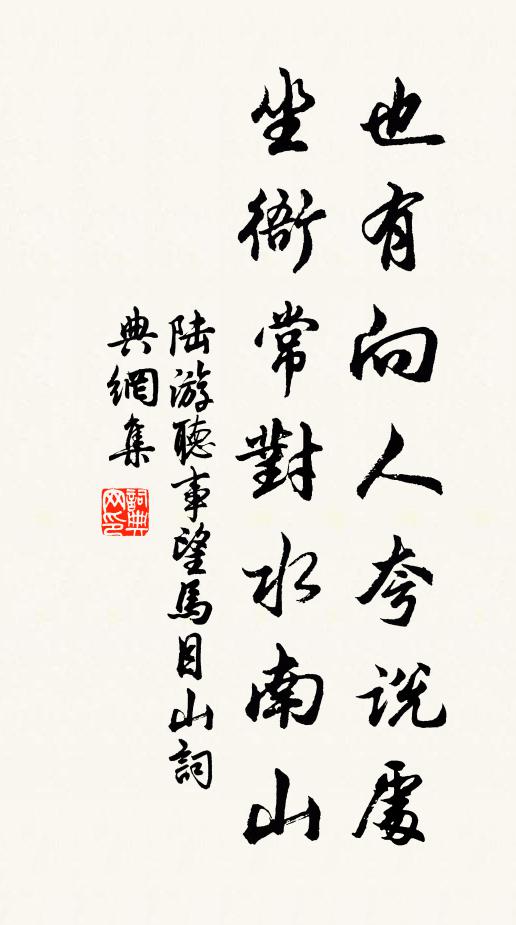 也有向人夸説處
坐衙常對水南山
陆游聽事望馬目山詞
典網集
詞典
网印